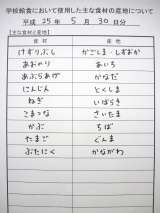 学校給食において使用した主な食材の産地について
平成 25年 5月 30日分
【主な食材と産地】
食材 産地
けずりぶし かごしま・しずおか
あおのり あいち
あぶらあげ かなだ
にんじん とくしま
ねぎ いばらき
こまつな さいたま
かぶ ちば
たまご ぐんま
ぶたにく かながわ